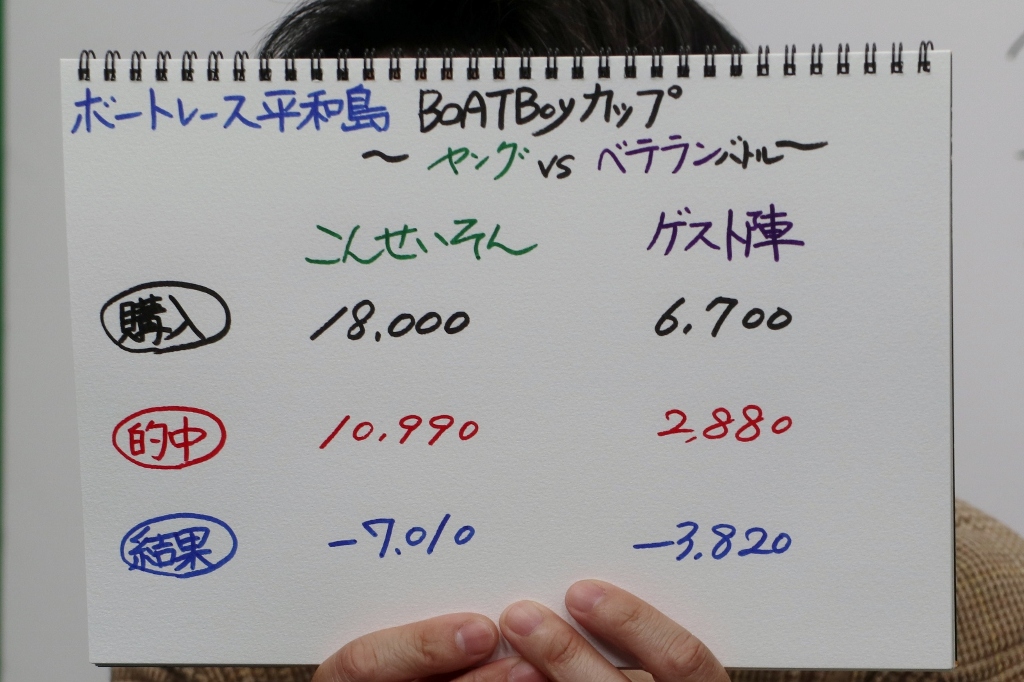 ボートレース平和島 BOATBoyカップ
〜ヤングvsベテランバトル〜
こんせいそん ゲスト陣
購入 18.000 6.700
的中 10.990 2,880
結果 -7.010 -3.820